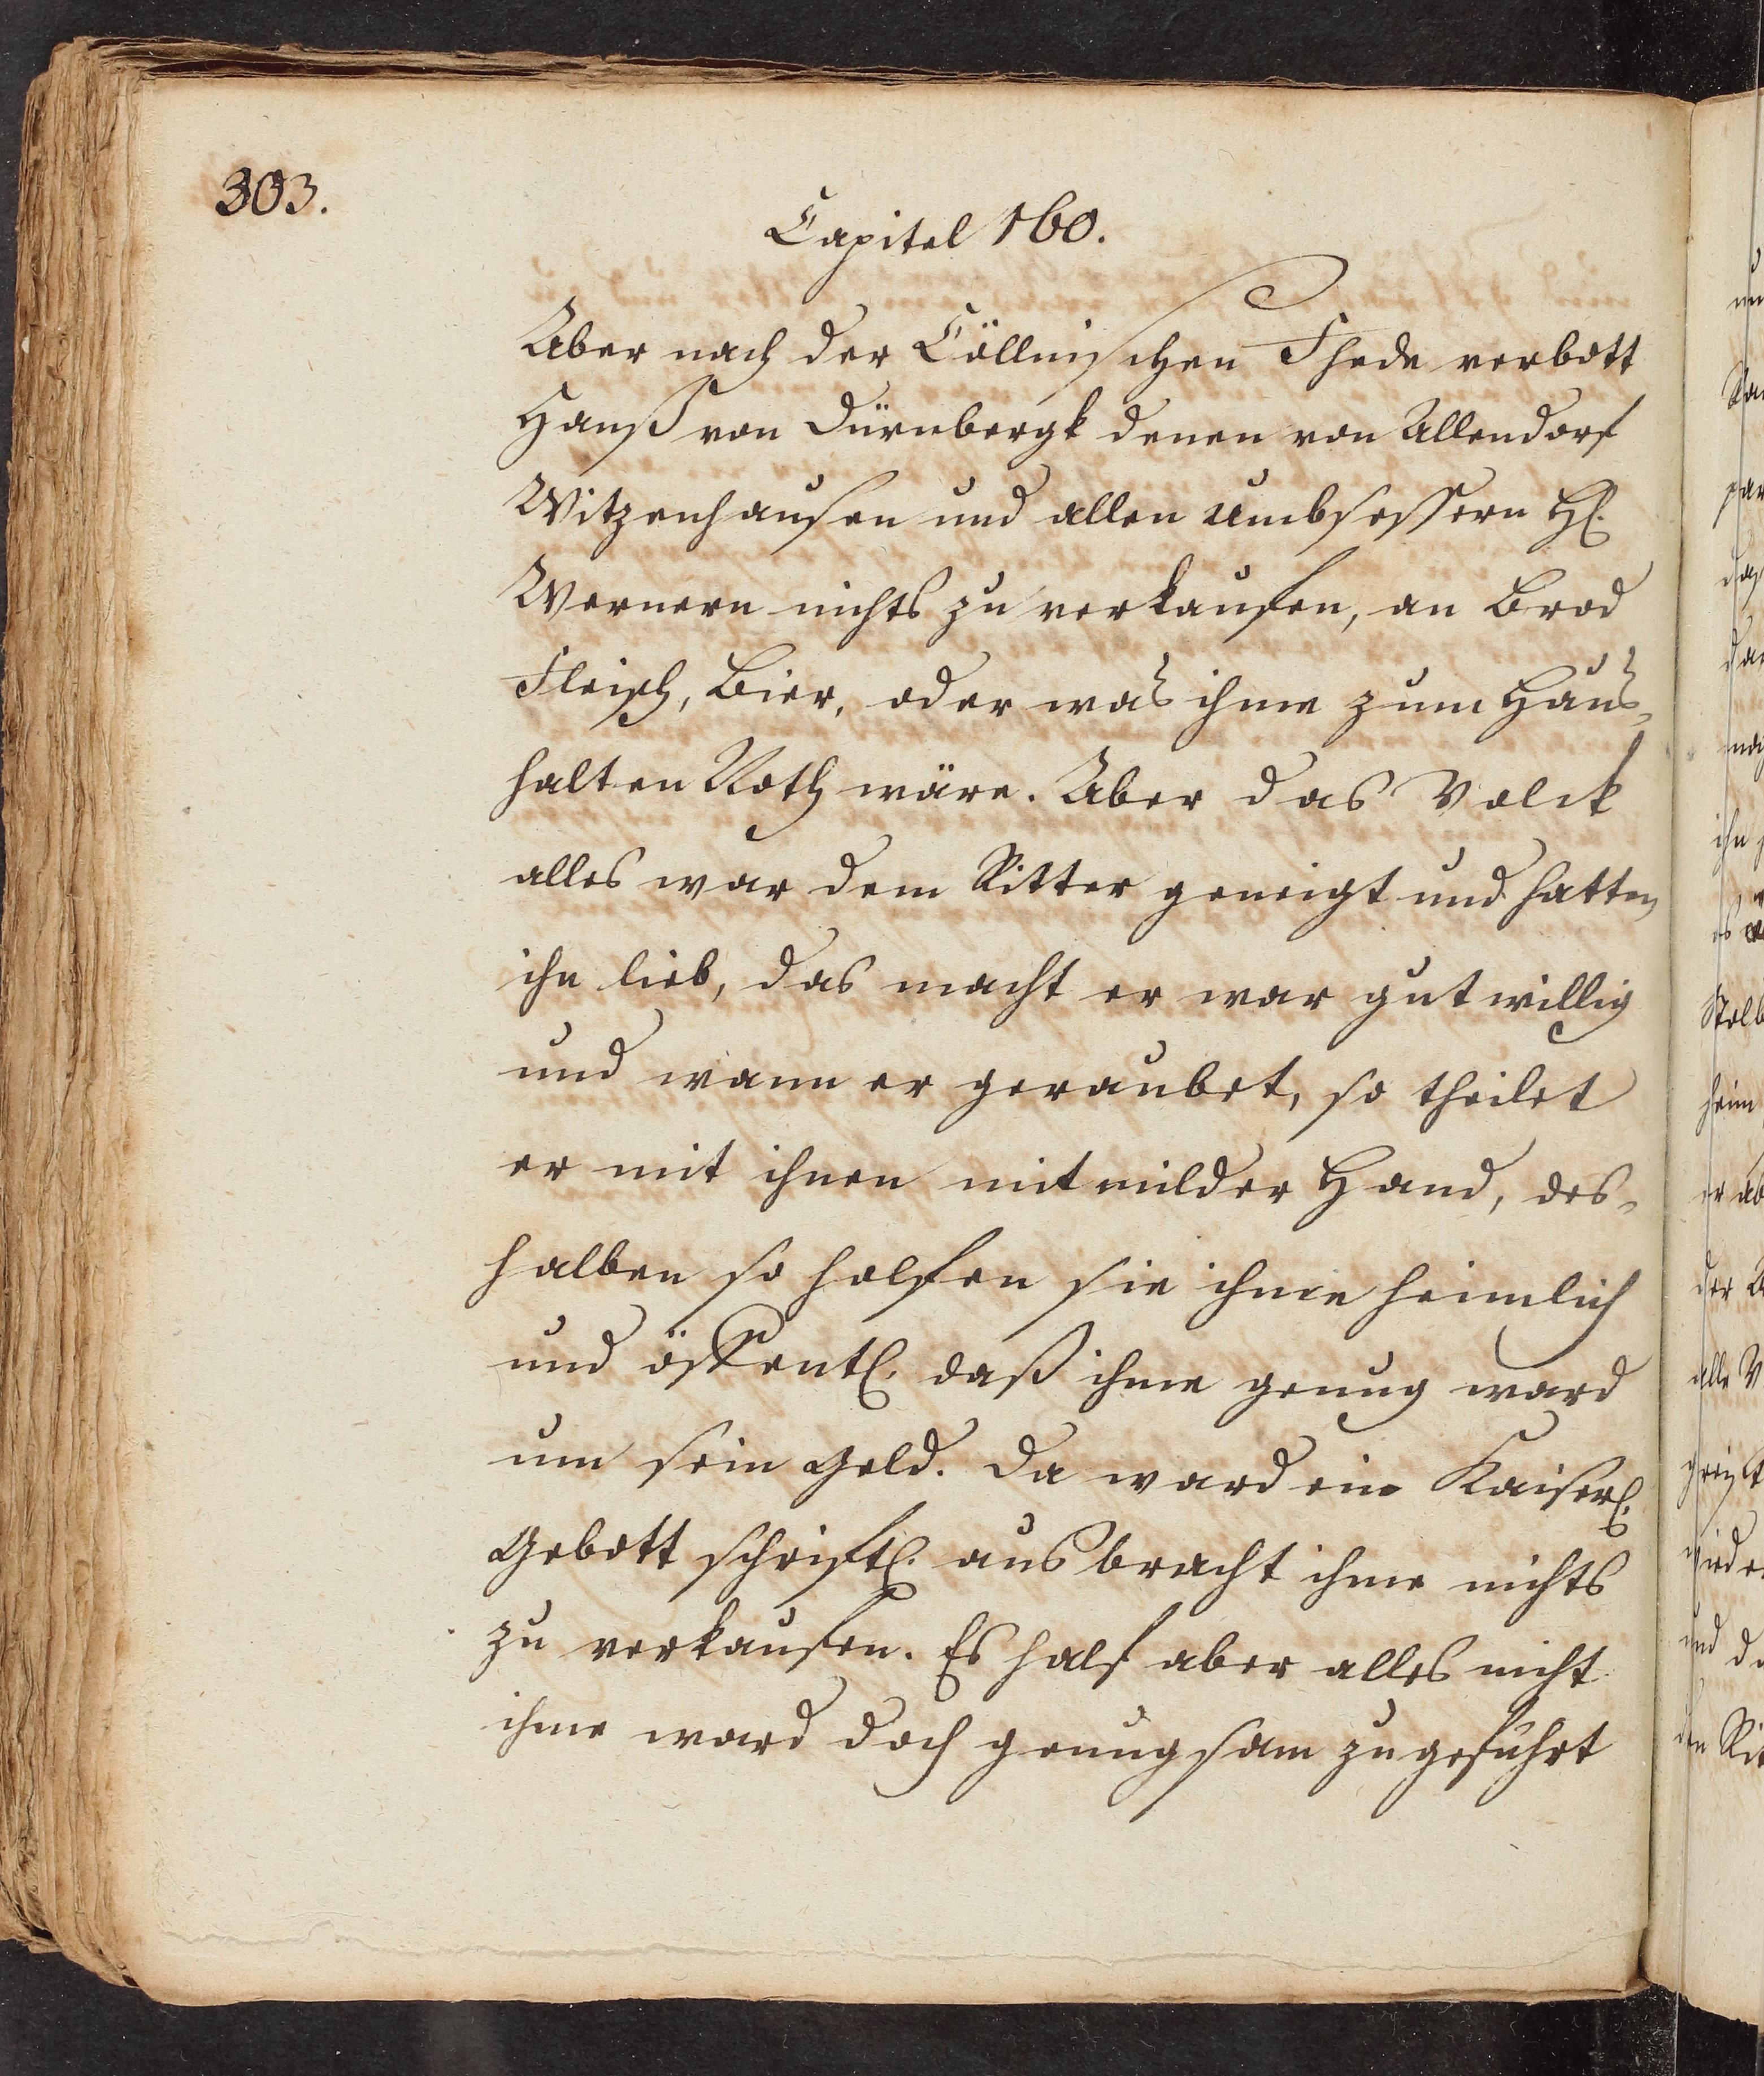 303.
Capitel 160.
Aber nach der Cöllnischen Fhede verbott
Hanß von Dürnbergk denen von Allendorf
Witzenhausen und allen Umbsessern H.
Wernern nichts zu verkaufen, an Brod
Fleisch, Bier, oder was ihme zum Haus-
halten Noth wäre. Aber das Volck
alles war dem Ritter geneigt und hatten
ihn lieb, das macht er war gutwillig
und wann er geraubet, so theilet
er mit ihnen mit milder Hand, des-
halben so holfen sie ihme heimlich
und öffentl. daß ihme genug ward
um sein Geld. Da ward ein Kaiserl.
Gebott schriftl. ausbracht ihme nichts
zu verkaufen. Es half aber alles nicht
ihme ward doch genugsam zugeführt